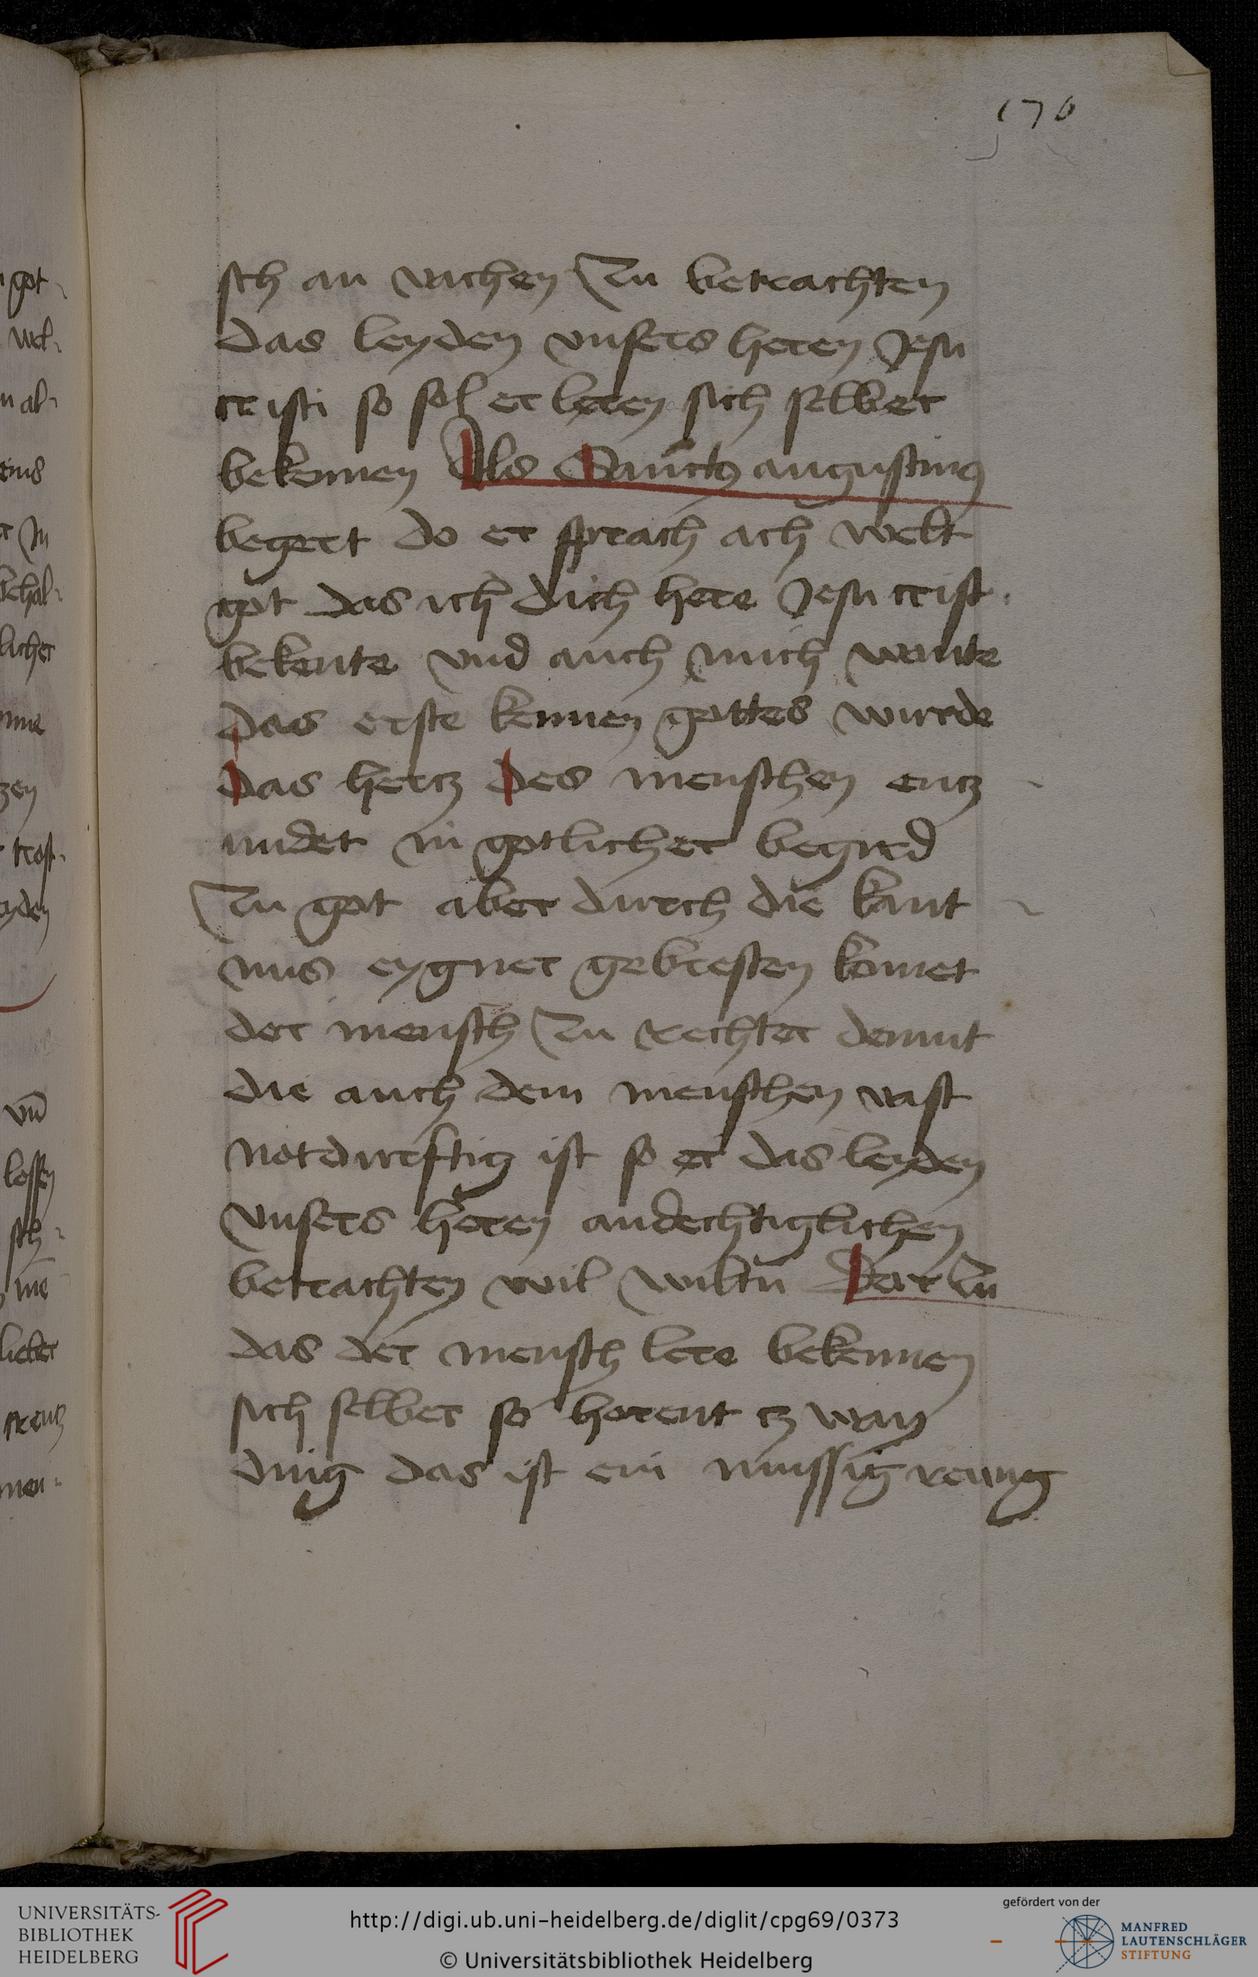 176
sch an vachen Zu betrachten
das leyden vnsers heren Jesu
cristi so sol er leren sich selber
bekennen Als Sanctus augustinus
begert do er sprach ach welt
got das ich dich here Jesu crist
bekente vnd auch mich wante
das erste kennen gottes wurde
das hertz des menschen entz
undet in gotlicher begird
Zu got aber durch die kant
nus eygner gebresten komet
der mensch Zu rechter demut
die auch dem menschen vast
notdurftig ist so er das leyden
vnsers heren andechtiglichen
betrachten wil wiltu Dar Zu
das der mensch lere bekennen
sich selber so horent tz way
ding das ist ein mussig reung
UNIVERSITÄTS-
BIBLIOTHEK
HEIDELBERG
http://digi.ub.uni-heidelberg.de/diglit/cpg69/0373
© Universitätsbibliothek Heidelberg
gefördert von der
MANFRED
LAUTENSCHLÄGER
STIFTUNG